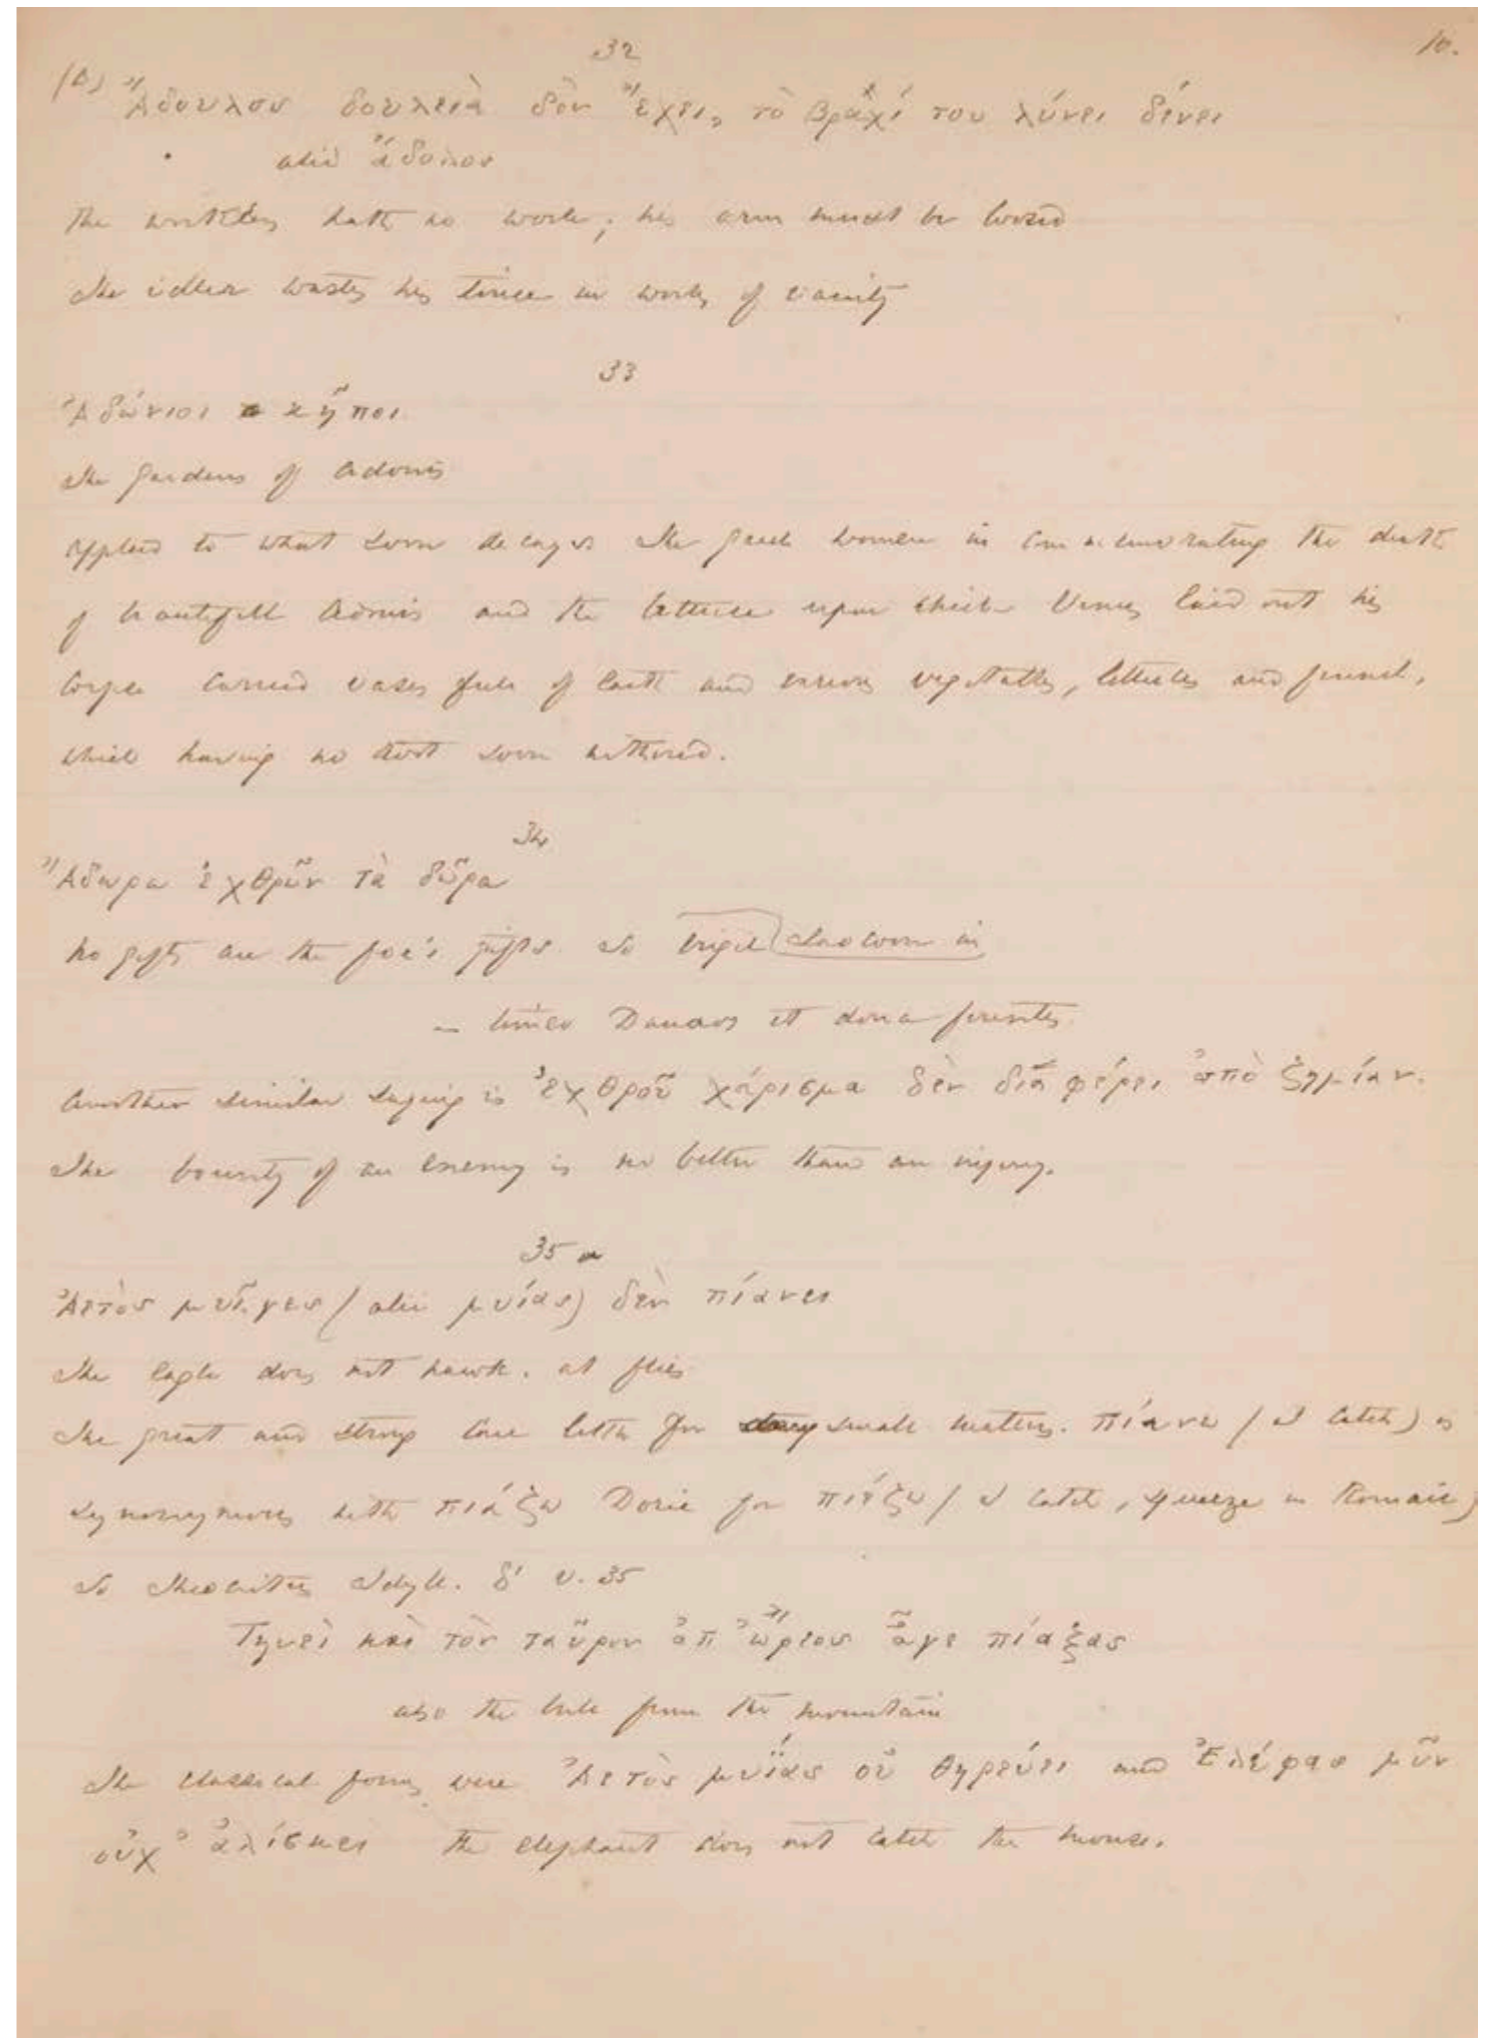 32
10.
(Δ) Ἄδουλος δουλειὰ δὲν ἔχει, τὸ βρακί του λύνει δένει
alii ἄδολος
The workless hath no work; his arm must be loosed
The idler wastes his time in works of vacuity
33
Ἀδώνιοι κῆποι
The gardens of Adonis
applied to what soon decays The Greek women in commemorating the death
of beautifull Adonis and the lettuce upon which Venus laid out his
corpse carried vases full of earth and various vegetables, lettuces and fennel,
which having no root soon withered.
34
Ἄδωρα ἐχθρῶν τὰ δῶρα
No gifts are the foe's gifts. So Virgil Laocoon in
— timeo Danaos et dona ferentes
Another similar saying is ἐχθροῦ χάρισμα δὲν διαφέρει ἀπὸ ζημίαν.
The bounty of an enemy is no better than an injury.
35
Ἀετὸς μυῖγες (alii μυίας) δὲν πιάνει
The Eagle does not hawk at flies
The great and strong care little for small matters. πιάνω (I catch) is
synonymous with πιάζω Doric for πιέζω (I catch, squeeze in Romaic)
So Theocritus Idyll. δ' v. 35
Τηνεὶ καὶ τὸν ταῦρον ἀπ' ὤρεος ἆγε πιάξας
also the bull from the mountain
The classical forms were Ἀετὸς μυΐας οὐ θηρεύει and Ἐλέφας μῦν
οὐχ ἁλίσκει the elephant does not catch the mouse.